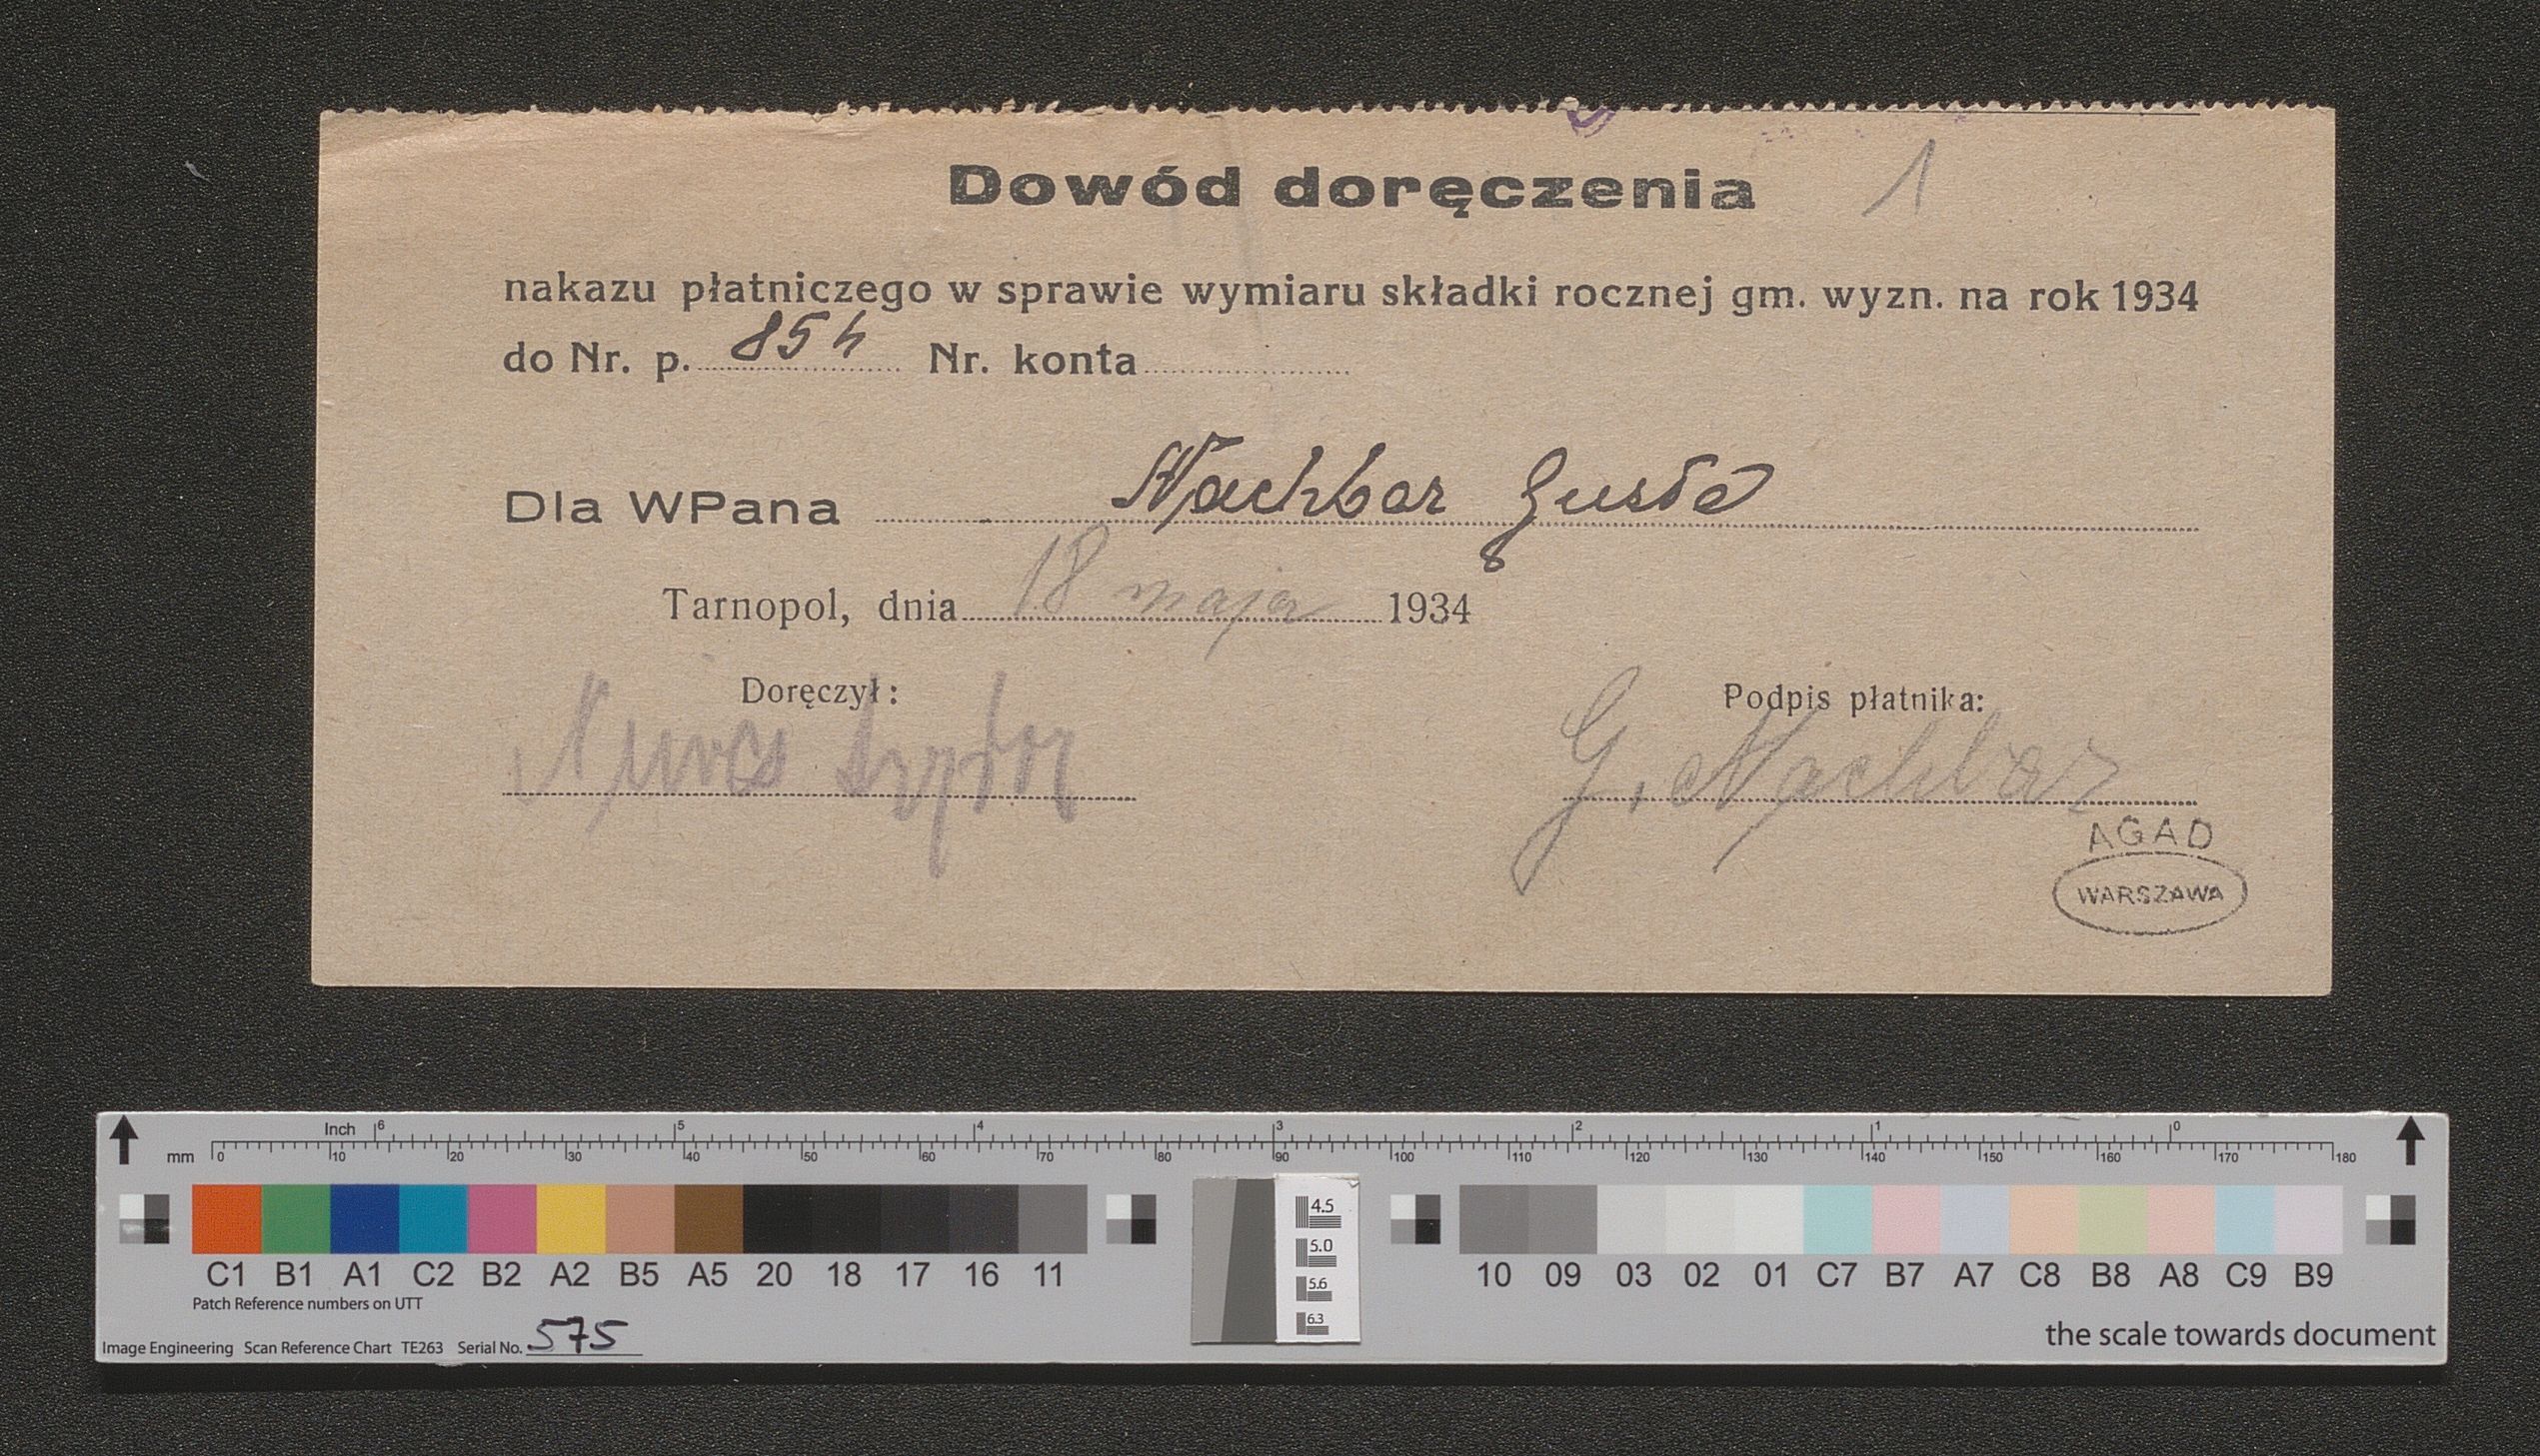 Dowód doręczenia 1
nakazu płatniczego w sprawie wymiaru składki rocznej gm. wyzn. na rok 1934
do Nr. p. 854 Nr. konta
Dla WPana Nachbar Gusta
Tarnopol, dnia 18 maja 1934
Doręczył: Podpis płatnika:
G. Nachbar
AGAD
WARSZAWA
Inch 6 5 4 3 2 1 0
mm 0 10 20 30 40 50 60 70 80 90 100 110 120 130 140 150 160 170 180
4.5
5.0
5.6
6.3
C1 B1 A1 C2 B2 A2 B5 A5 20 18 17 16 11 10 09 03 02 01 C7 B7 A7 C8 B8 A8 C9 B9
Patch Reference numbers on UTT
Image Engineering Scan Reference Chart TE263 Serial No. 575
the scale towards document